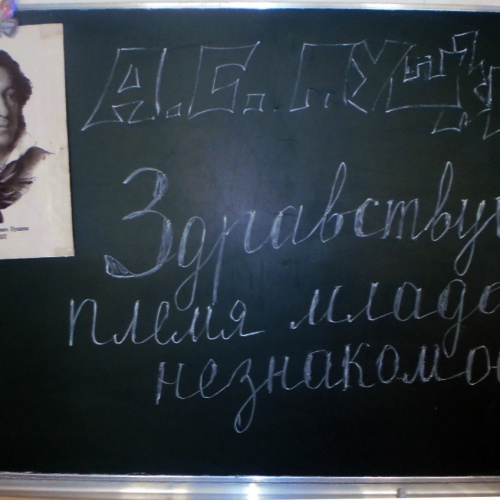 А.С. ПУШ
Здравству
племя младо
незнакомо